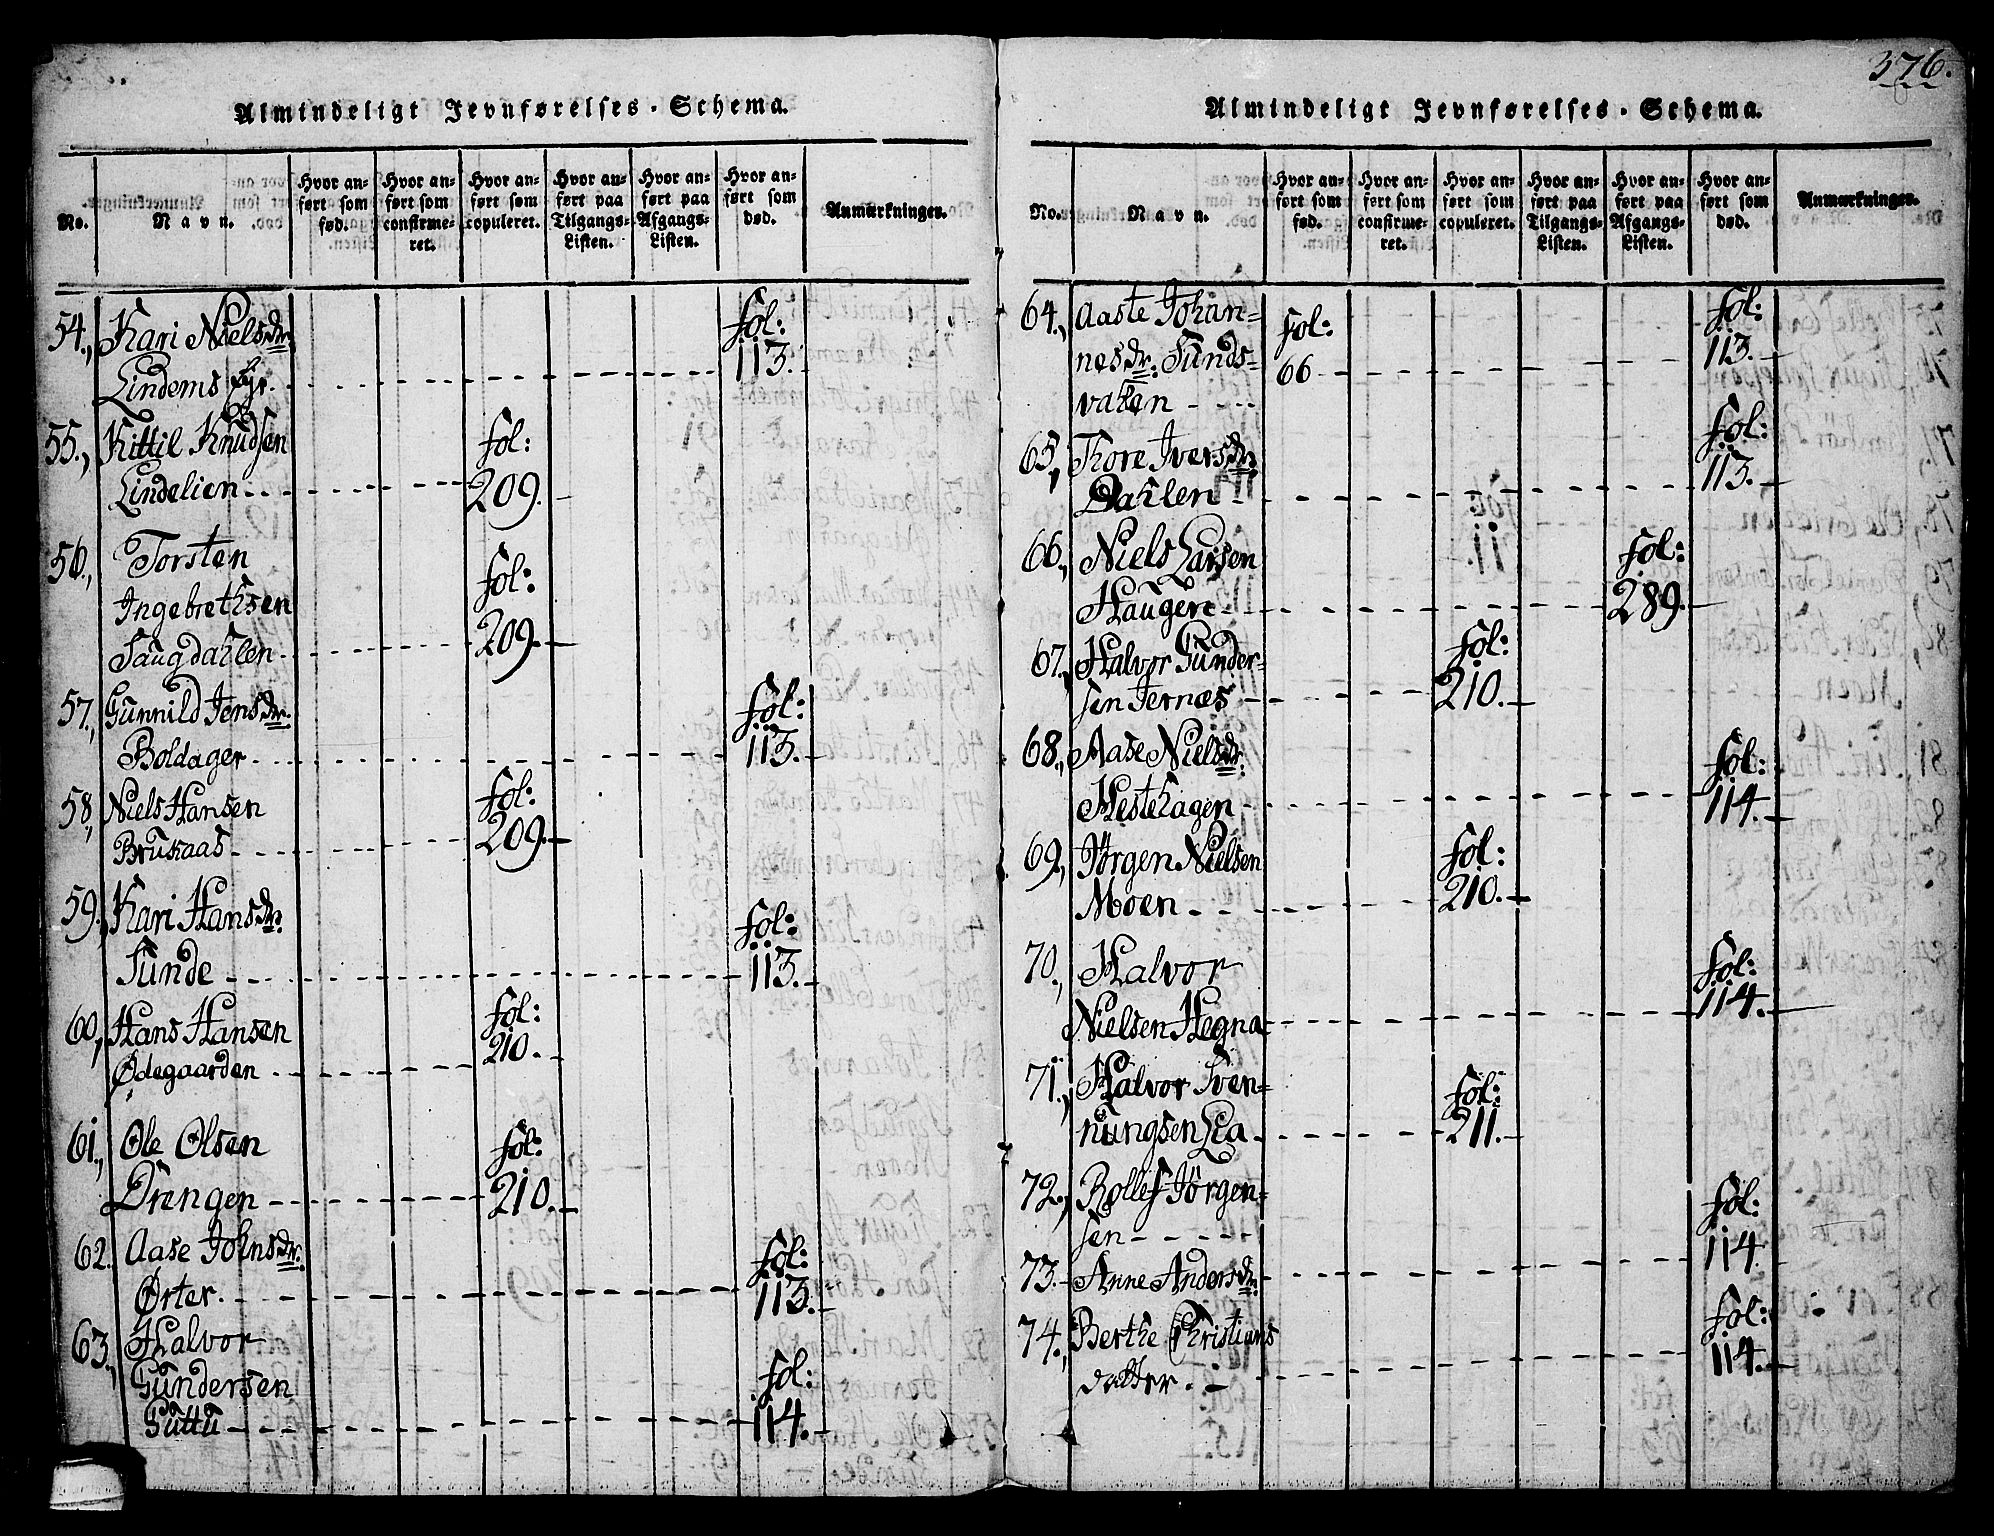 376.
Almindeligt Jevnførelses-Schema.
No.
Navn.
Hvor an-
ført som
fød.
Hvor an-
ført som
confirme-
ret.
Hvor an-
ført som
copuleret.
Hvor an-
ført paa
Tilgangs-
Listen.
Hvor an-
ført paa
Afgangs-
Listen.
Hvor an-
ført som
død.
Anmærkninger.
54., Kari Nielsdr.
Lindems Eyr. fol: 113.
55., Kittil Knudsen
Lindelien fol: 209.
56., Torsten
Ingebrethsen
Saugdahlen fol: 209.
57., Gunnild Jensdr.
Boldager fol: 113.
58., Niels Hansen
Brukaas fol: 209.
59., Kari Hansdr.
Sunde fol: 113.
60., Hans Hansen
Ødegaarden fol: 210.
61., Ole Olsen
Drengen fol: 210.
62. Aase Johnsdr.
Ørter. fol: 113.
63., Halvor
Gundersen
Guttu fol: 114.
Almindeligt Jevnførelses-Schema.
No.
Navn.
Hvor an-
ført som
fød.
Hvor an-
ført som
confirme-
ret.
Hvor an-
ført som
copuleret.
Hvor an-
ført paa
Tilgangs-
Listen.
Hvor an-
ført paa
Afgangs-
Listen.
Hvor an-
ført som
død.
Anmærkninger.
64., Aaste Johan=
nesdr. Sunds=
valen fol: 66 fol: 113.
65., Thore Iversdr.
Dahlen fol: 113.
66., Niels Larsen
Haugen fol: 289.
67., Halvor Gunder=
sen Jernæs fol: 210.
68., Aase Nielsdr.
Hestehagen fol: 114.
69., Jørgen Nielsen
Moen fol: 210.
70., Halvor
Nielsen Hegna fol: 114.
71., Halvor Sven=
nungsen Lia fol: 211.
72., Rollef Jørgen=
sen fol: 114.
73. Anne Andersdr.
74., Berthe Christians
datter. fol: 114.